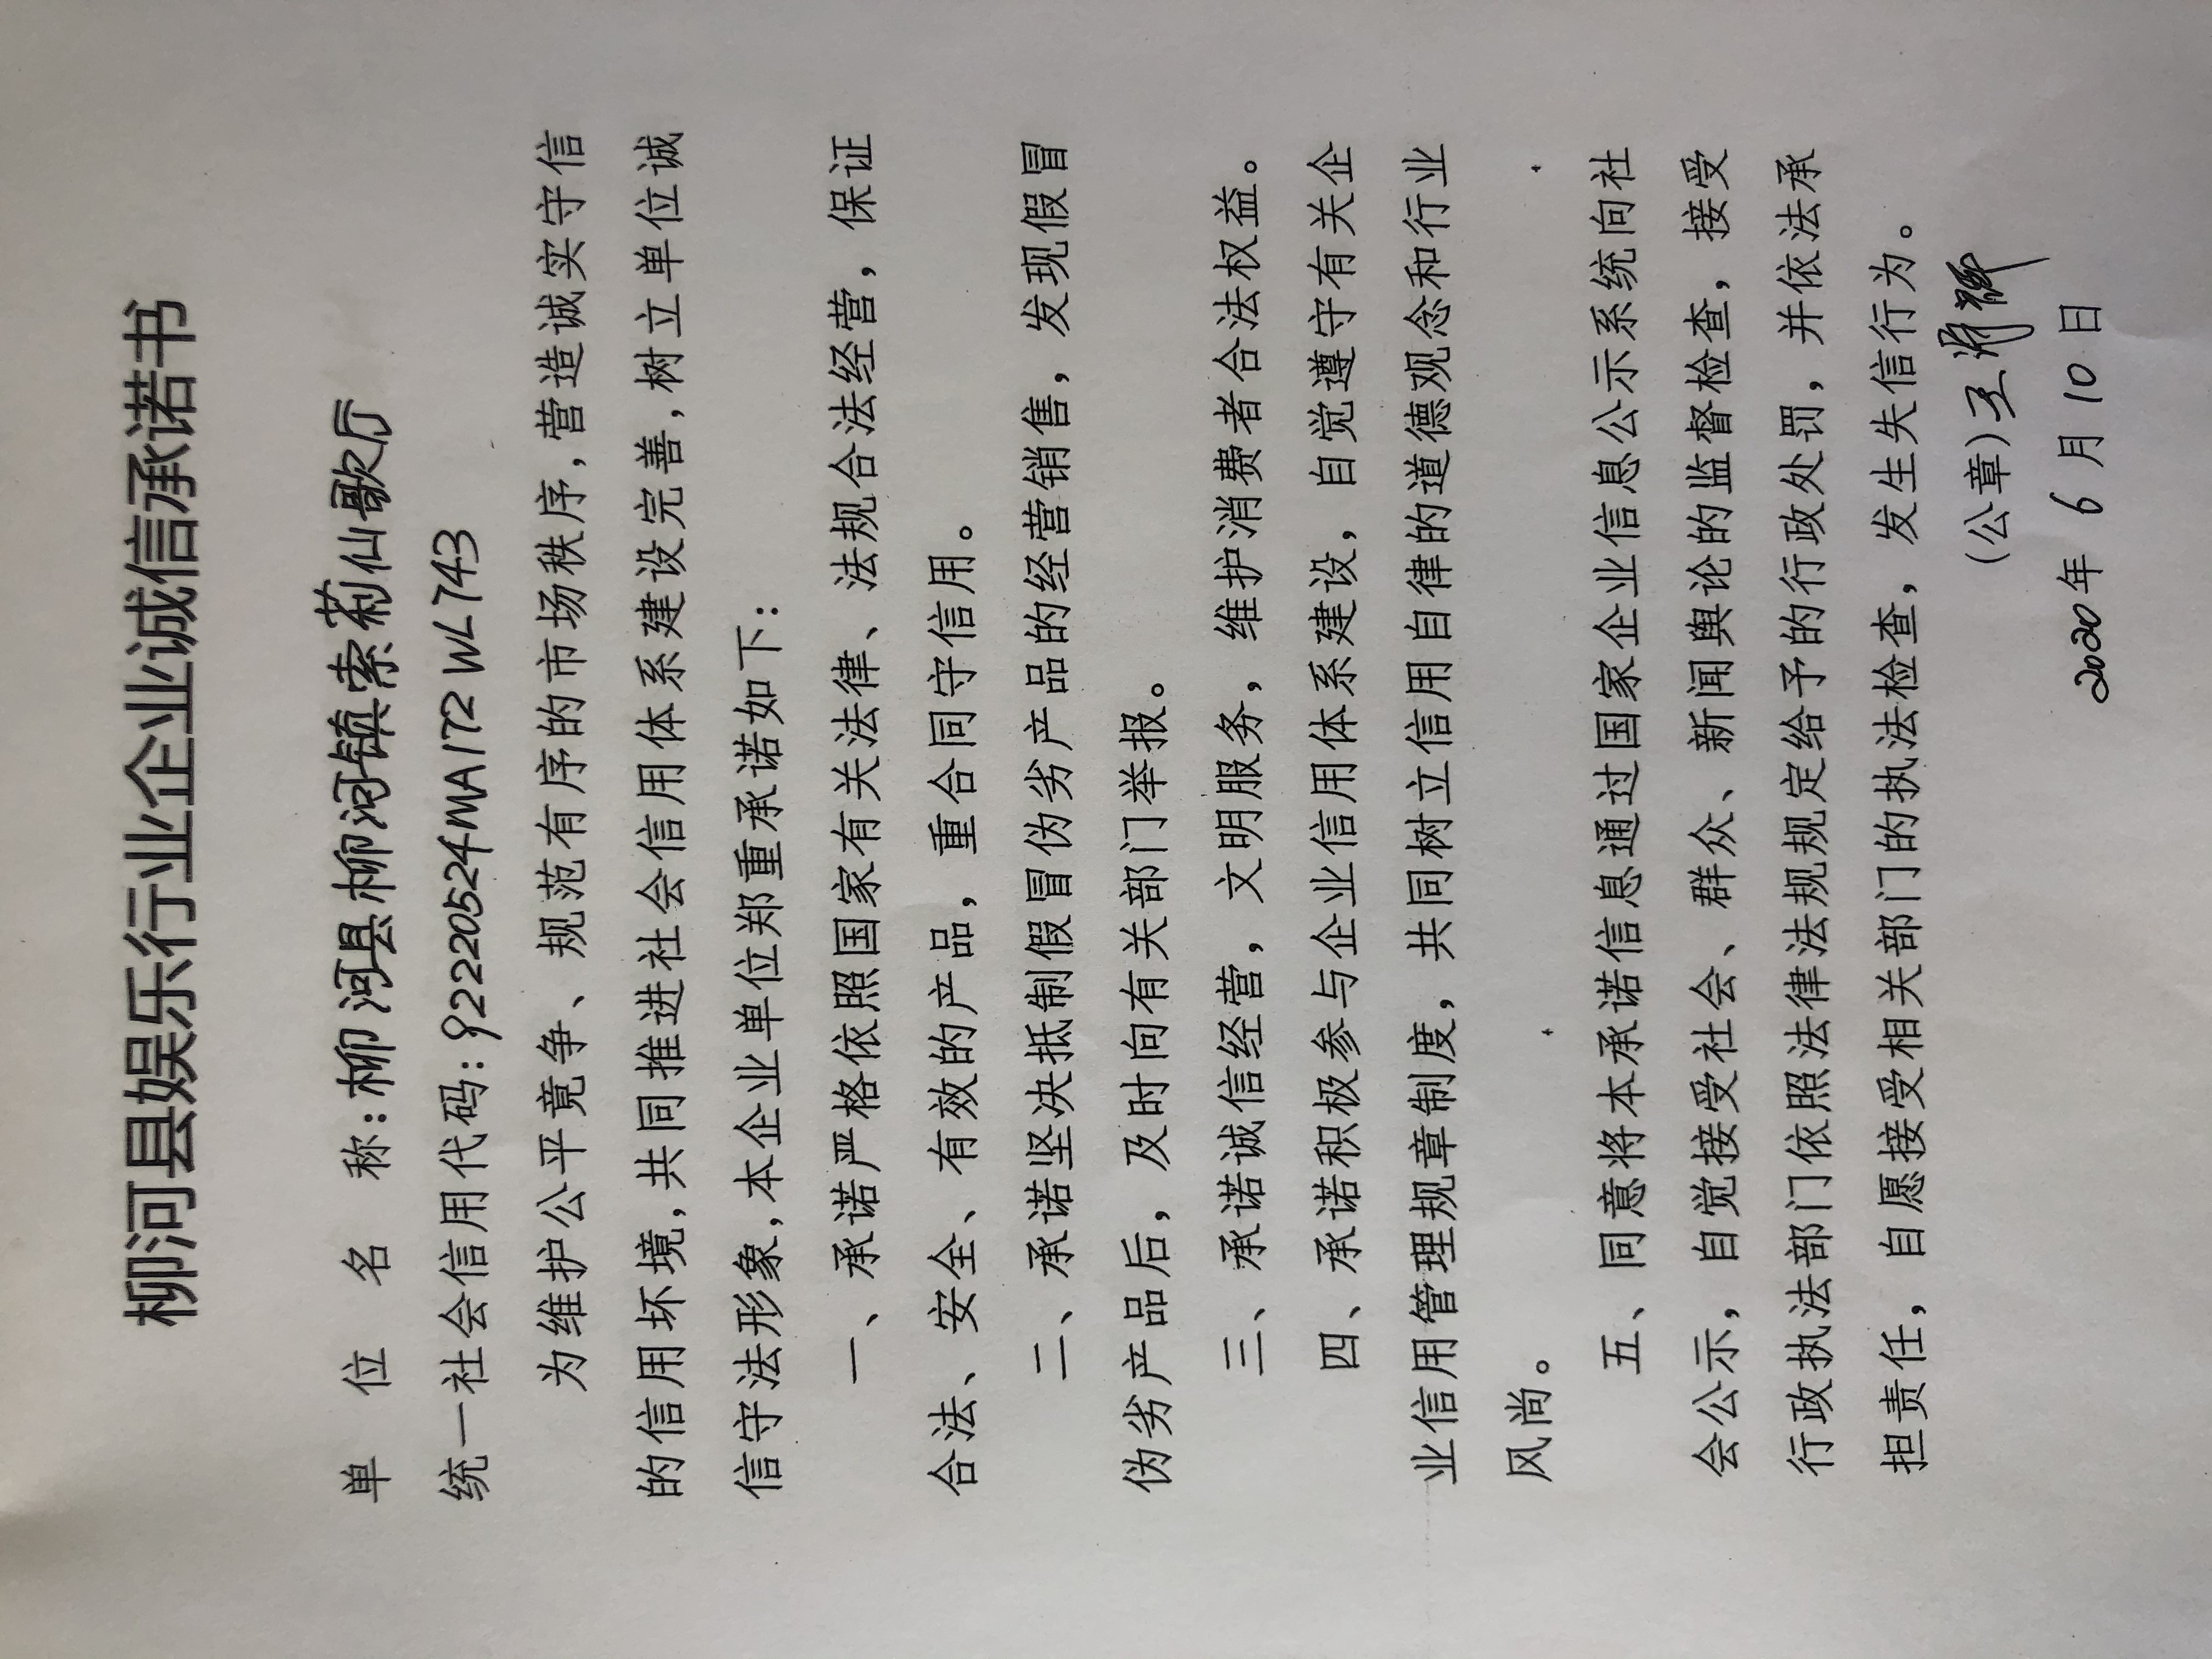 柳河县娱乐行业企业诚信承诺书
单位名称:柳河县柳河镇索莉仙歌厅
统一社会信用代码:92220524MA172WL743
为维护公平竟争、规范有序的市场秩序,营造诚实守信
的信用坏境,共同推进社会信用体系建设完善,树立单位诚
信守法形象,本企业单位郑重承诺如下:
一、承诺严格依照国家有关法律、法规合法经营,保证
合法、安全、有效的产品,重合同守信用。
二、承诺坚决抵制假冒伪劣产品的经营销售,发现假冒
伪劣产品后,及时向有关部门举报。
三、承诺诚信经营,文明服务,维护消费者合法权益。
四、承诺积极参与企业信用体系建设,自觉遵守有关企
业信用管理规章制度,共同树立信用自律的道德观念和行业
风尚。
五、同意将本承诺信息通过国家企业信息公示系统向社
会公示,自觉接受社会、群众、新闻舆论的监督检查,接受
行政执法部门依照法律法规规定给予的行政处罚,并依法承
担责任,自愿接受相关部门的执法检查,发生失信行为。
(公章)
2020年6月10日